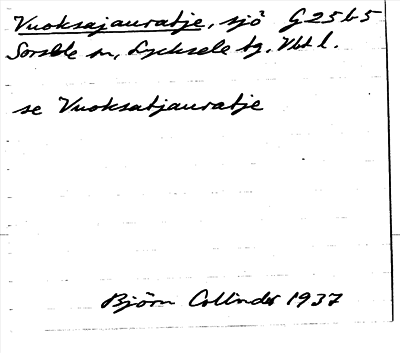 Vuoksajauratje, sjö G25b5
Sorsele sn, Lycksele tg. Vbtl.
se Vuoksatjauratje
Björn Collinder 1937